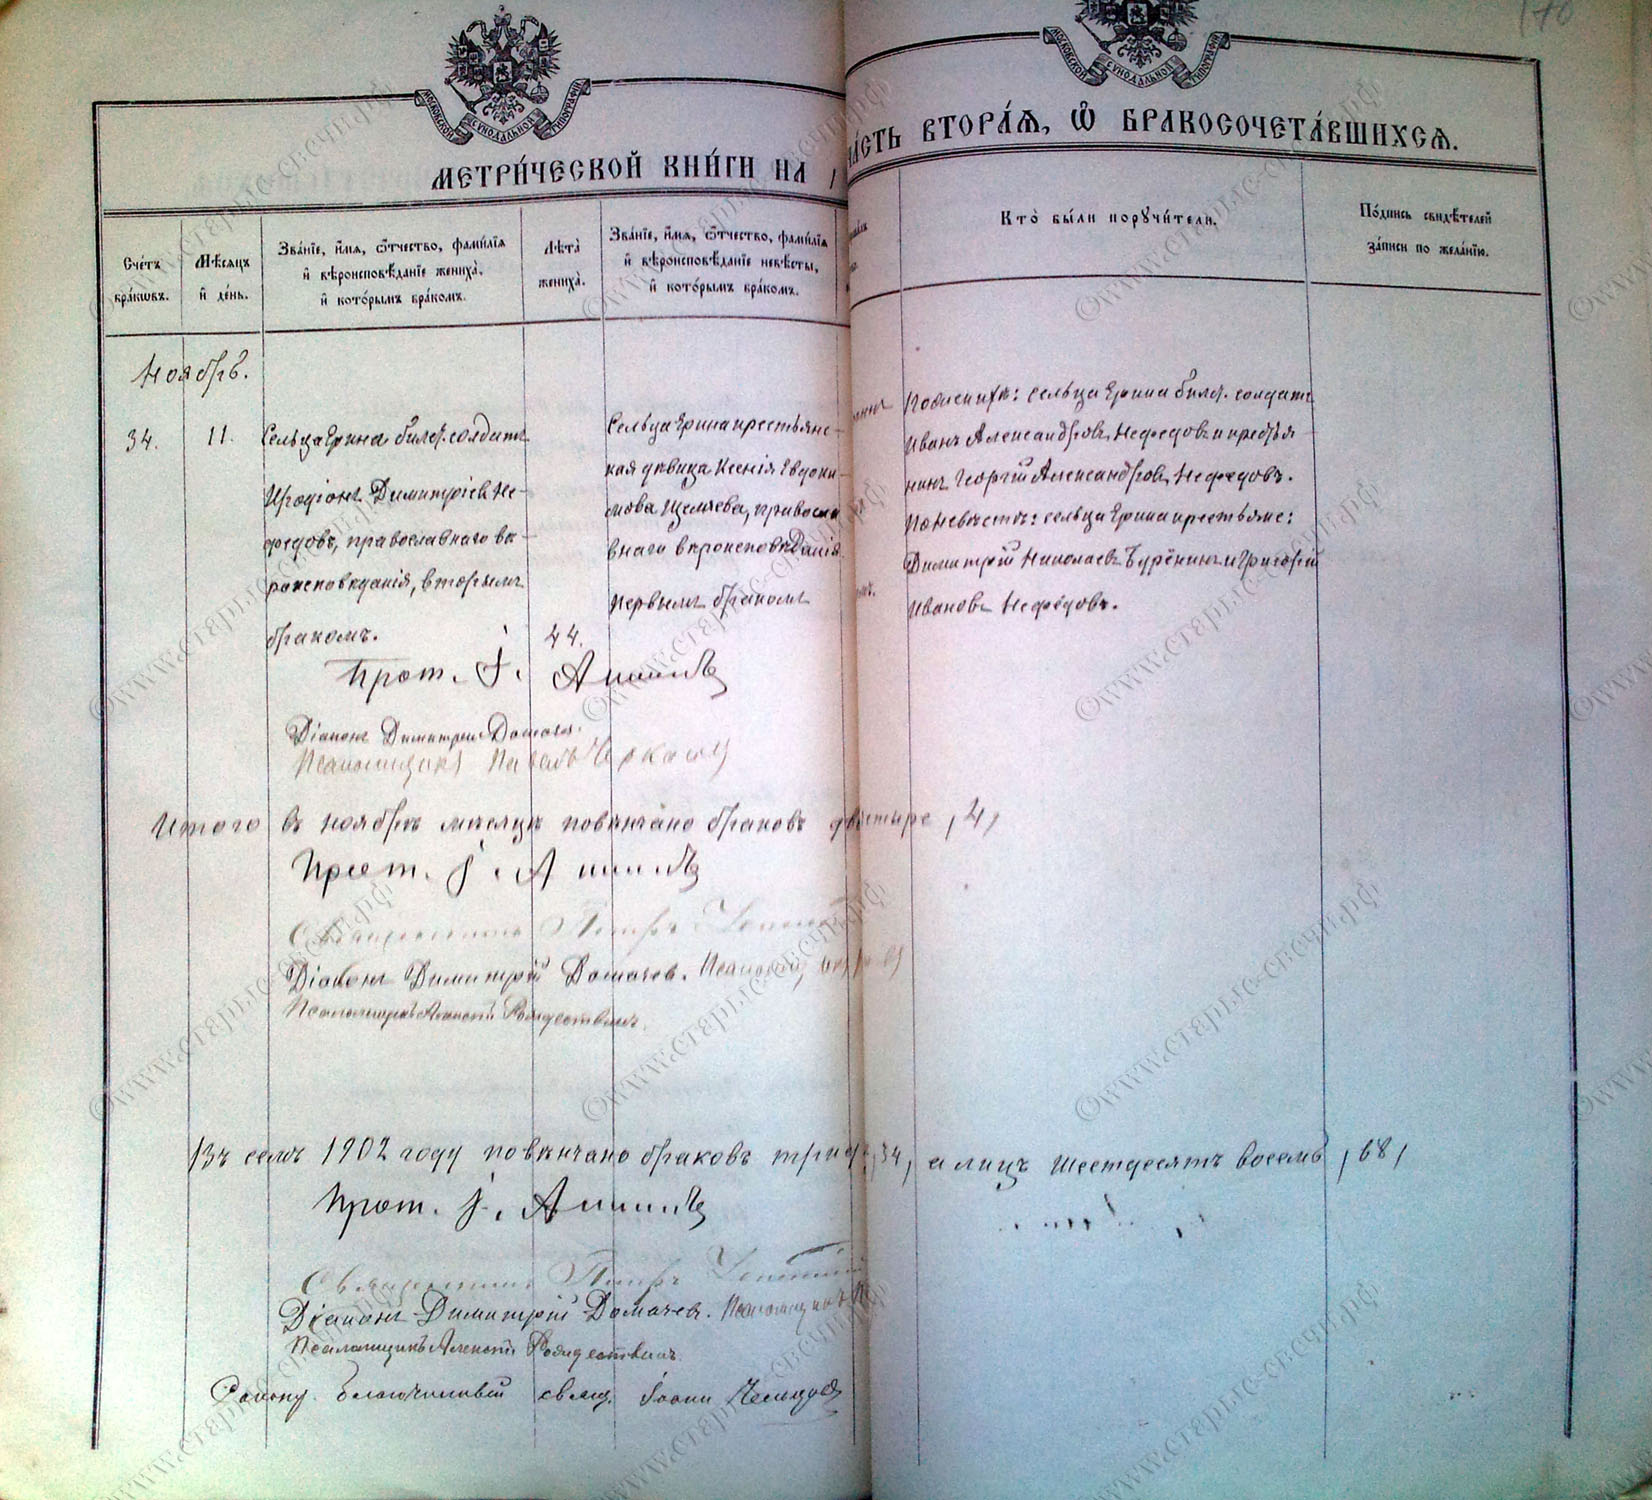 170
МОСКОВСКОЙ СУНОДАЛЬНОЙ ТИПОГРАФІИ
МОСКОВСКОЙ СУНОДАЛЬНОЙ ТИПОГРАФІИ
МЕТРИ́ЧЕСКОЙ КНИ́ГИ НА 1
ЧА́СТЬ ВТОРА́Я, Ѽ БРАКОСОЧЕТА́ВШИХСЯ.
Сче́тъ бра́кѡвъ.
Мѣ́сяцъ и҆ де́нь.
Зва́нїе, и҆́мя, ѻ҆́тчество, фами́лїя и҆ вѣроисповѣ́данїе жениха̀, и҆ кото́рымъ бра́комъ.
Лѣта̀ жениха̀.
Зва́нїе, и҆́мя, ѻ҆́тчество, фами́лїя и҆ вѣроисповѣ́данїе невѣ́сты, и҆ кото́рымъ бра́комъ.
Кто̀ бы́ли порꙋчи́тели.
По́дпись свидѣ́телей за́писи по жела́нїю.
Ноябрь.
34.
11.
Сельца Ерина билет. солдатъ
Иродіонъ Димитріевъ Не-
федовъ, православнаго вѣ-
роисповѣданія, вторымъ
бракомъ.
44.
Сельца Ерина крестьянс-
кая дѣвица Ксенія Евдоки-
мова, православ
внаго вѣроисповѣданія
первымъ бракомъ
По женихѣ: сельца Ерина билет. солдатъ
Иванъ Александровъ Нефедовъ и крестья
нинъ Георгій Александровъ Нефедовъ.
По невѣстѣ: сельца Ерина крестьяне:
Димитрій Николаевъ Бурёнинъ и Григорій
Ивановъ Нефёдовъ.
Прот. І.
Діаконъ Димитрій Домачев.
Псаломщикъ Павелъ
Итого въ ноябрѣ мѣсяцѣ повѣнчано браковъ четыре, 4,
Прот. І.
Священникъ Петръ
Діаконъ Димитрій Домачев. Псаломщ
Псаломщикъ Алексѣй Рождественъ.
Въ семъ 1902 году повѣнчано браковъ 34, а лицъ шестдесятъ восемь, 68,
Прот. І.
Священникъ Петръ
Діаконъ Димитрій Домачев. Псаломщикъ
Псаломщикъ Алексѣй Рождественъ.
благочинный свящ. Іоаннъ
©www.старые-свечи.рф